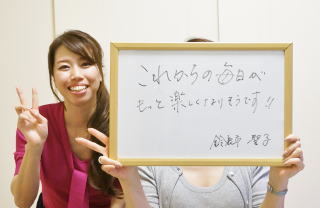 これからの毎日が
もっと楽しくなりそうです!!
聖子